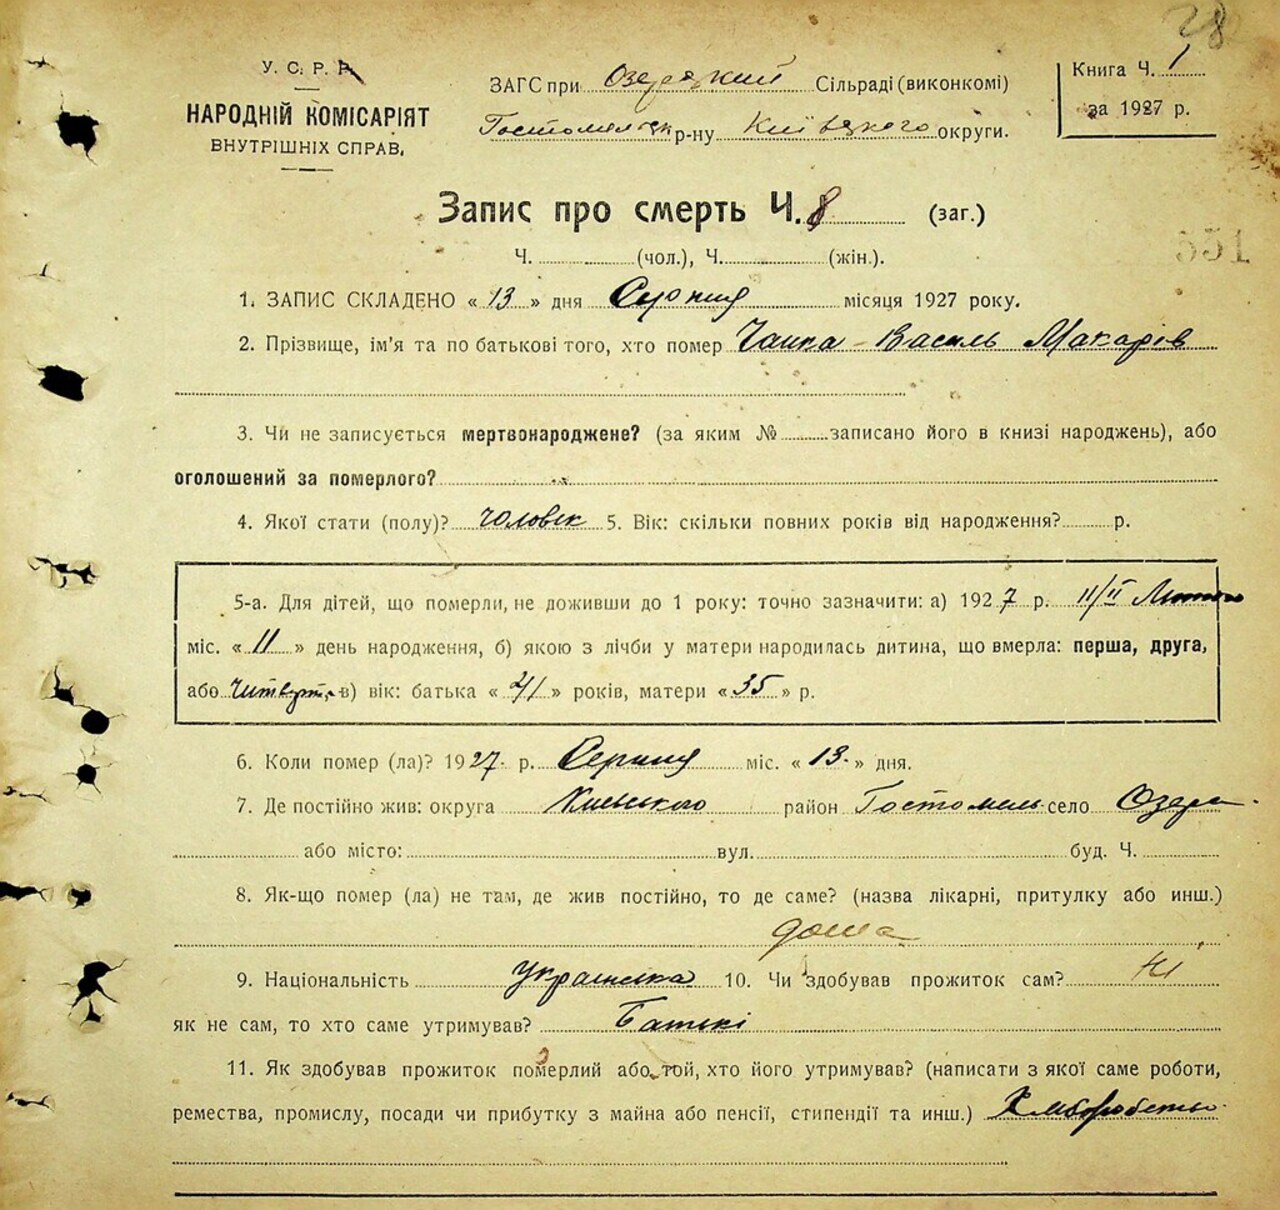 28
У. С. Р. Р.
НАРОДНІЙ КОМІСАРІЯТ
ВНУТРІШНІХ СПРАВ.
ЗАГС при Озерський Сільраді (виконкомі)
Гостомельськ р-ну Київського округи.
Книга Ч. 1
за 1927 р.
Запис про смерть Ч. 8 (заг.)
551
Ч. (чол.), Ч. (жін.).
1. ЗАПИС СКЛАДЕНО « 13 » дня Серпня місяця 1927 року.
2. Прізвище, ім'я та по батькові того, хто помер Чайка - Василь Макарів
3. Чи не записується мертвонароджене? (за яким № записано його в книзі народжень), або
оголошений за померлого?
4. Якої стати (полу)? чоловік 5. Вік: скільки повних років від народження? р.
5-а. Для дітей, що померли, не доживши до 1 року: точно зазначити: а) 1927 р. 11/II Лютого
міс. « 11 » день народження, б) якою з лічби у матери народилась дитина, що вмерла: перша, друга,
або Читверта в) вік: батька « 41 » років, матери « 35 » р.
6. Коли помер (ла)? 1927 р. Серпня міс. « 13 » дня.
7. Де постійно жив: округа Київського район Гостомель село Озера
або місто: вул. буд. Ч.
8. Як-що помер (ла) не там, де жив постійно, то де саме? (назва лікарні, притулку або инш.)
дома
9. Національність українка 10. Чи здобував прожиток сам? Ні
як не сам, то хто саме утримував? Батькі
11. Як здобував прожиток померлий або той, хто його утримував? (написати з якої саме роботи,
ремества, промислу, посади чи прибутку з майна або пенсії, стипендії та инш.) Хліборобство